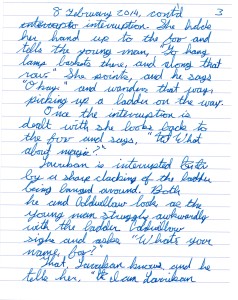 8 February 2014, cont'd 3
interrupts interruption. She holds
her hand up to the four and
tells the young man, "Hang
lamp brackets there, and along that
row." She points, and he says
"Okay" and wanders that way
picking up a ladder on the way.
Once the interruption is
dealt with she looks back to
the four and says, "What
about magic?"
is interrupted
by a sharp clacking of the ladder
being banged around. Both
he and look as the
young man struggles awkwardly
with the ladder.
sighs and asks "What's your
name, boy?"
That, knows, and he
tells her. "I am